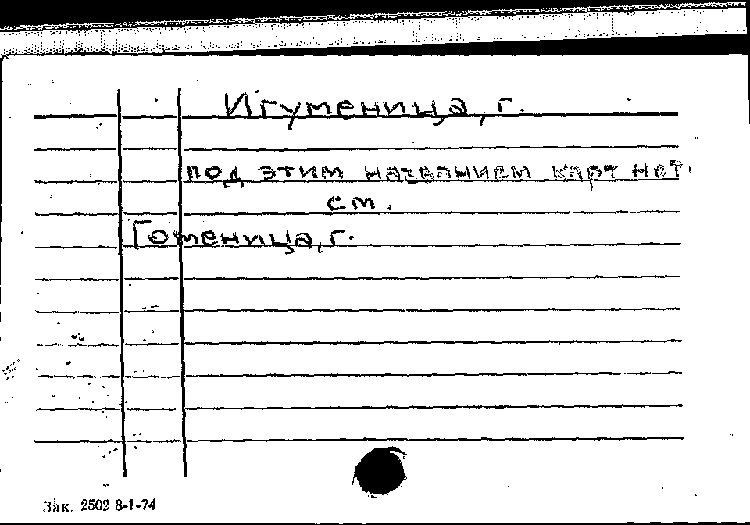 Игуменица, г.
под этим названием карт нет.
см.
Гоменица, г.
Зак. 2502 8-1-74